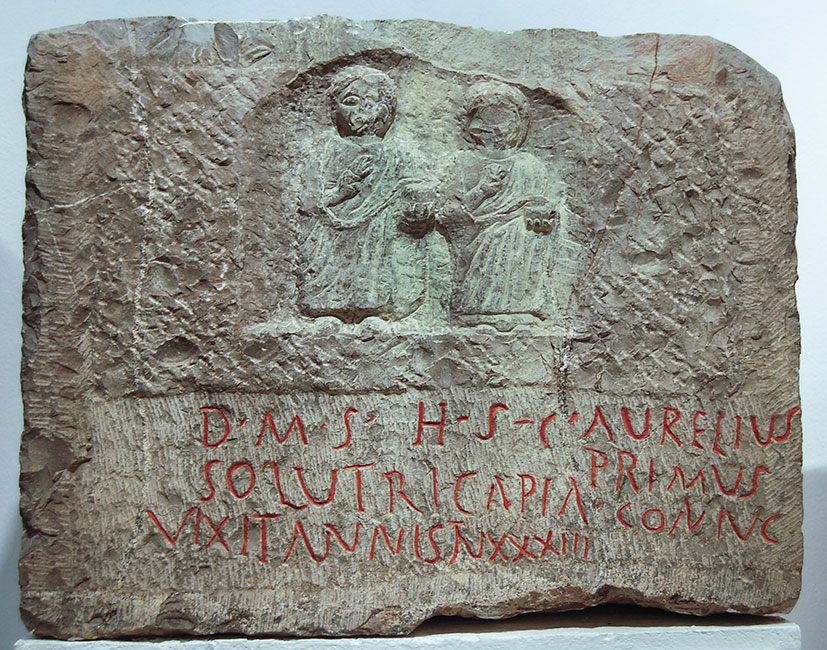 D·M·S· H·S·C·AURELIUS
SOLUTRICAPIA PRIMUS
VIXITANNISN XXXIII ·CONNUC